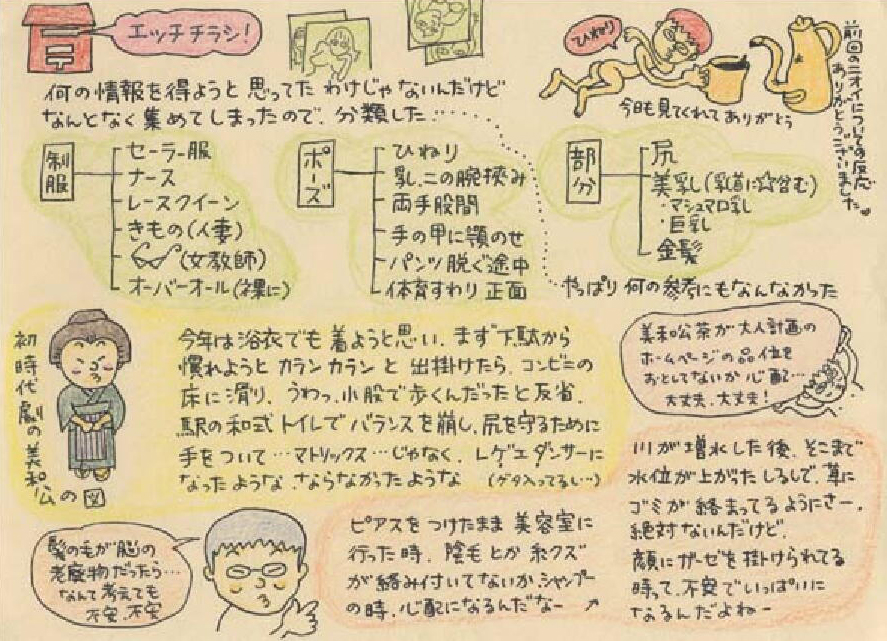 エッチチラシ!
何の情報を得ようと思ってたわけじゃないんだけど
なんとなく集めてしまったので、分類した……
ひねり
今日も見てくれてありがとう
前回のニオイについての反応
ありがとうございました。
制服
セーラー服
ナース
レースクイーン
きもの(人妻)
(女教師)
オーバーオール(裸に)
ポーズ
ひねり
乳、二の腕挟み
両手股間
手の甲に顎のせ
パンツ脱ぐ途中
体育すわり 正面
部分
尻
美乳し(乳首に☆含む)
・マシュマロ乳し
・巨乳し
金髪
やっぱり何の参考にもなんなかった
初時代劇の美和公の図
今年は浴衣でも着ようと思い、まず下駄から
慣れようとカランカランと出掛けたら、コンビニの
床に滑り、うわっ、小股で歩くんだったと反省、
駅の和式トイレでバランスを崩し、尻を守るために
手をついて…マトリックス…じゃなく、レゲエダンサーに
なったような、ならなかったような (ゲタ入ってるし…)
美和公茶が大人計画の
ホームページの品位を
おとしてないか心配…
大丈夫、大丈夫!
髪の毛が脳の
老廃物だったら…
なんて考えても
不安、不安
ピアスをつけたまま美容室に
行った時、陰毛とか糸クズ
が絡み付いてないか、シャンプー
の時、心配になるんだなー
川が増水した後、そこまで
水位が上がったしるしで、草に
ゴミが絡まってるようにさー。
絶対ないんだけど、
顔にガーゼを掛けられてる
時って、不安でいっぱいに
なるんだよねー